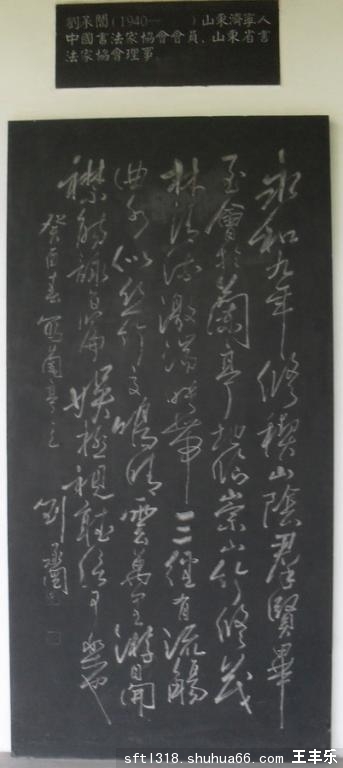 劉承闓(1940— )山東濟寧人
中國書法家協會會員、山東省書
法家協會理事
永和九年修禊山陰群賢畢
至會於蘭亭地臨崇山竹修茂
林清流激湍映帶三經有流觴
曲水似絲竹鳴雲萬里游目開
襟觴詠娛極視聽信可樂也
癸酉春蘭亭
劉承闓
sftl318.shuhua66.com 王丰乐